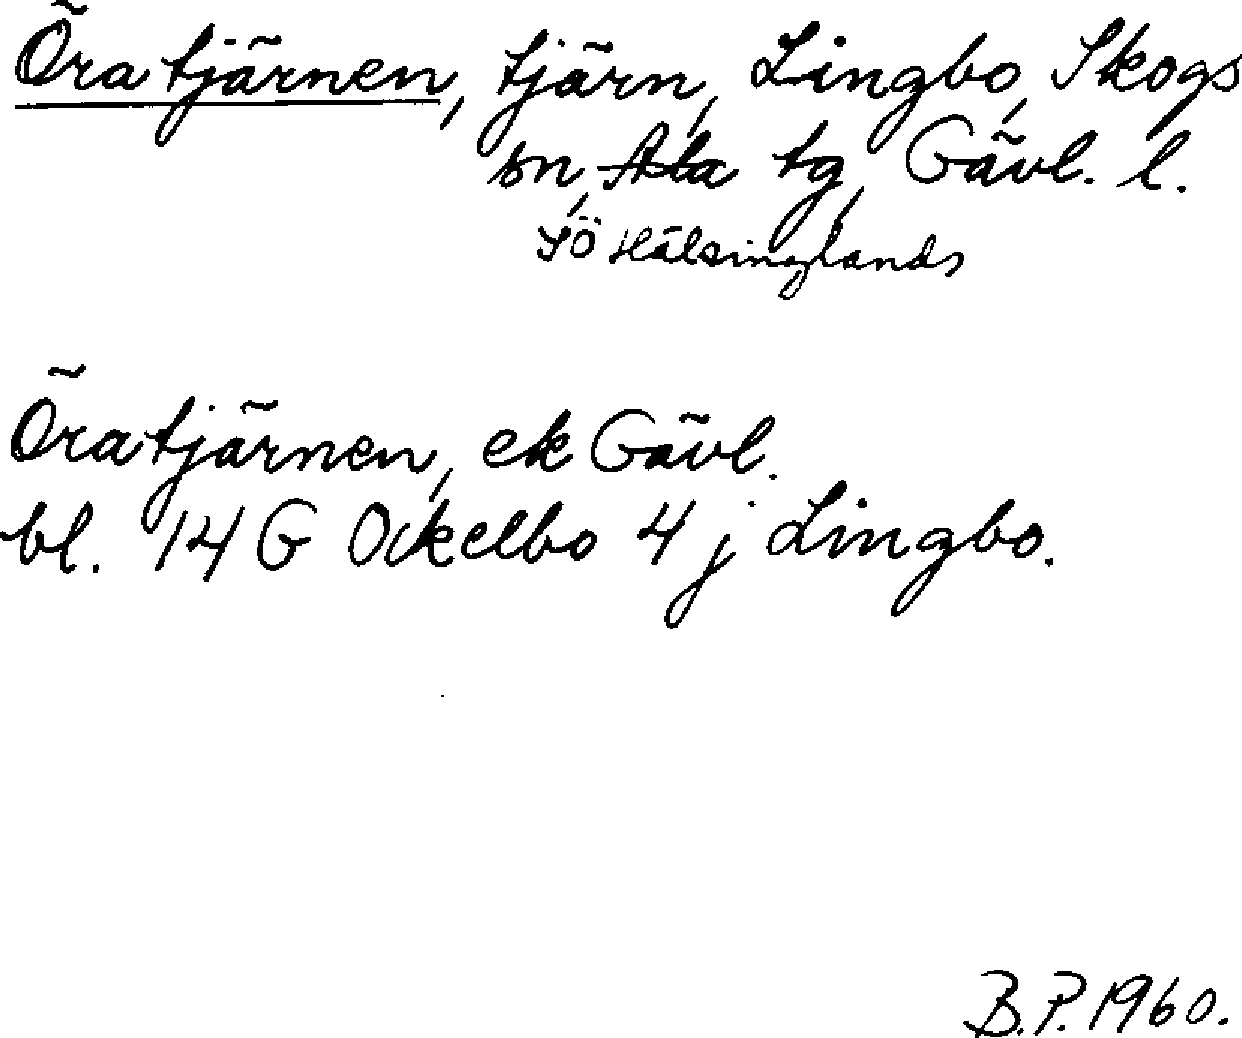 Öratjärnen, tjärn, Lingbo, Skogs
sn, Ala tg, Gävl. l.
SÖ Hälsinglands
Öratjärnen, ek Gävl.
bl. 14 G Ockelbo 4 j Lingbo.
B.P. 1960.